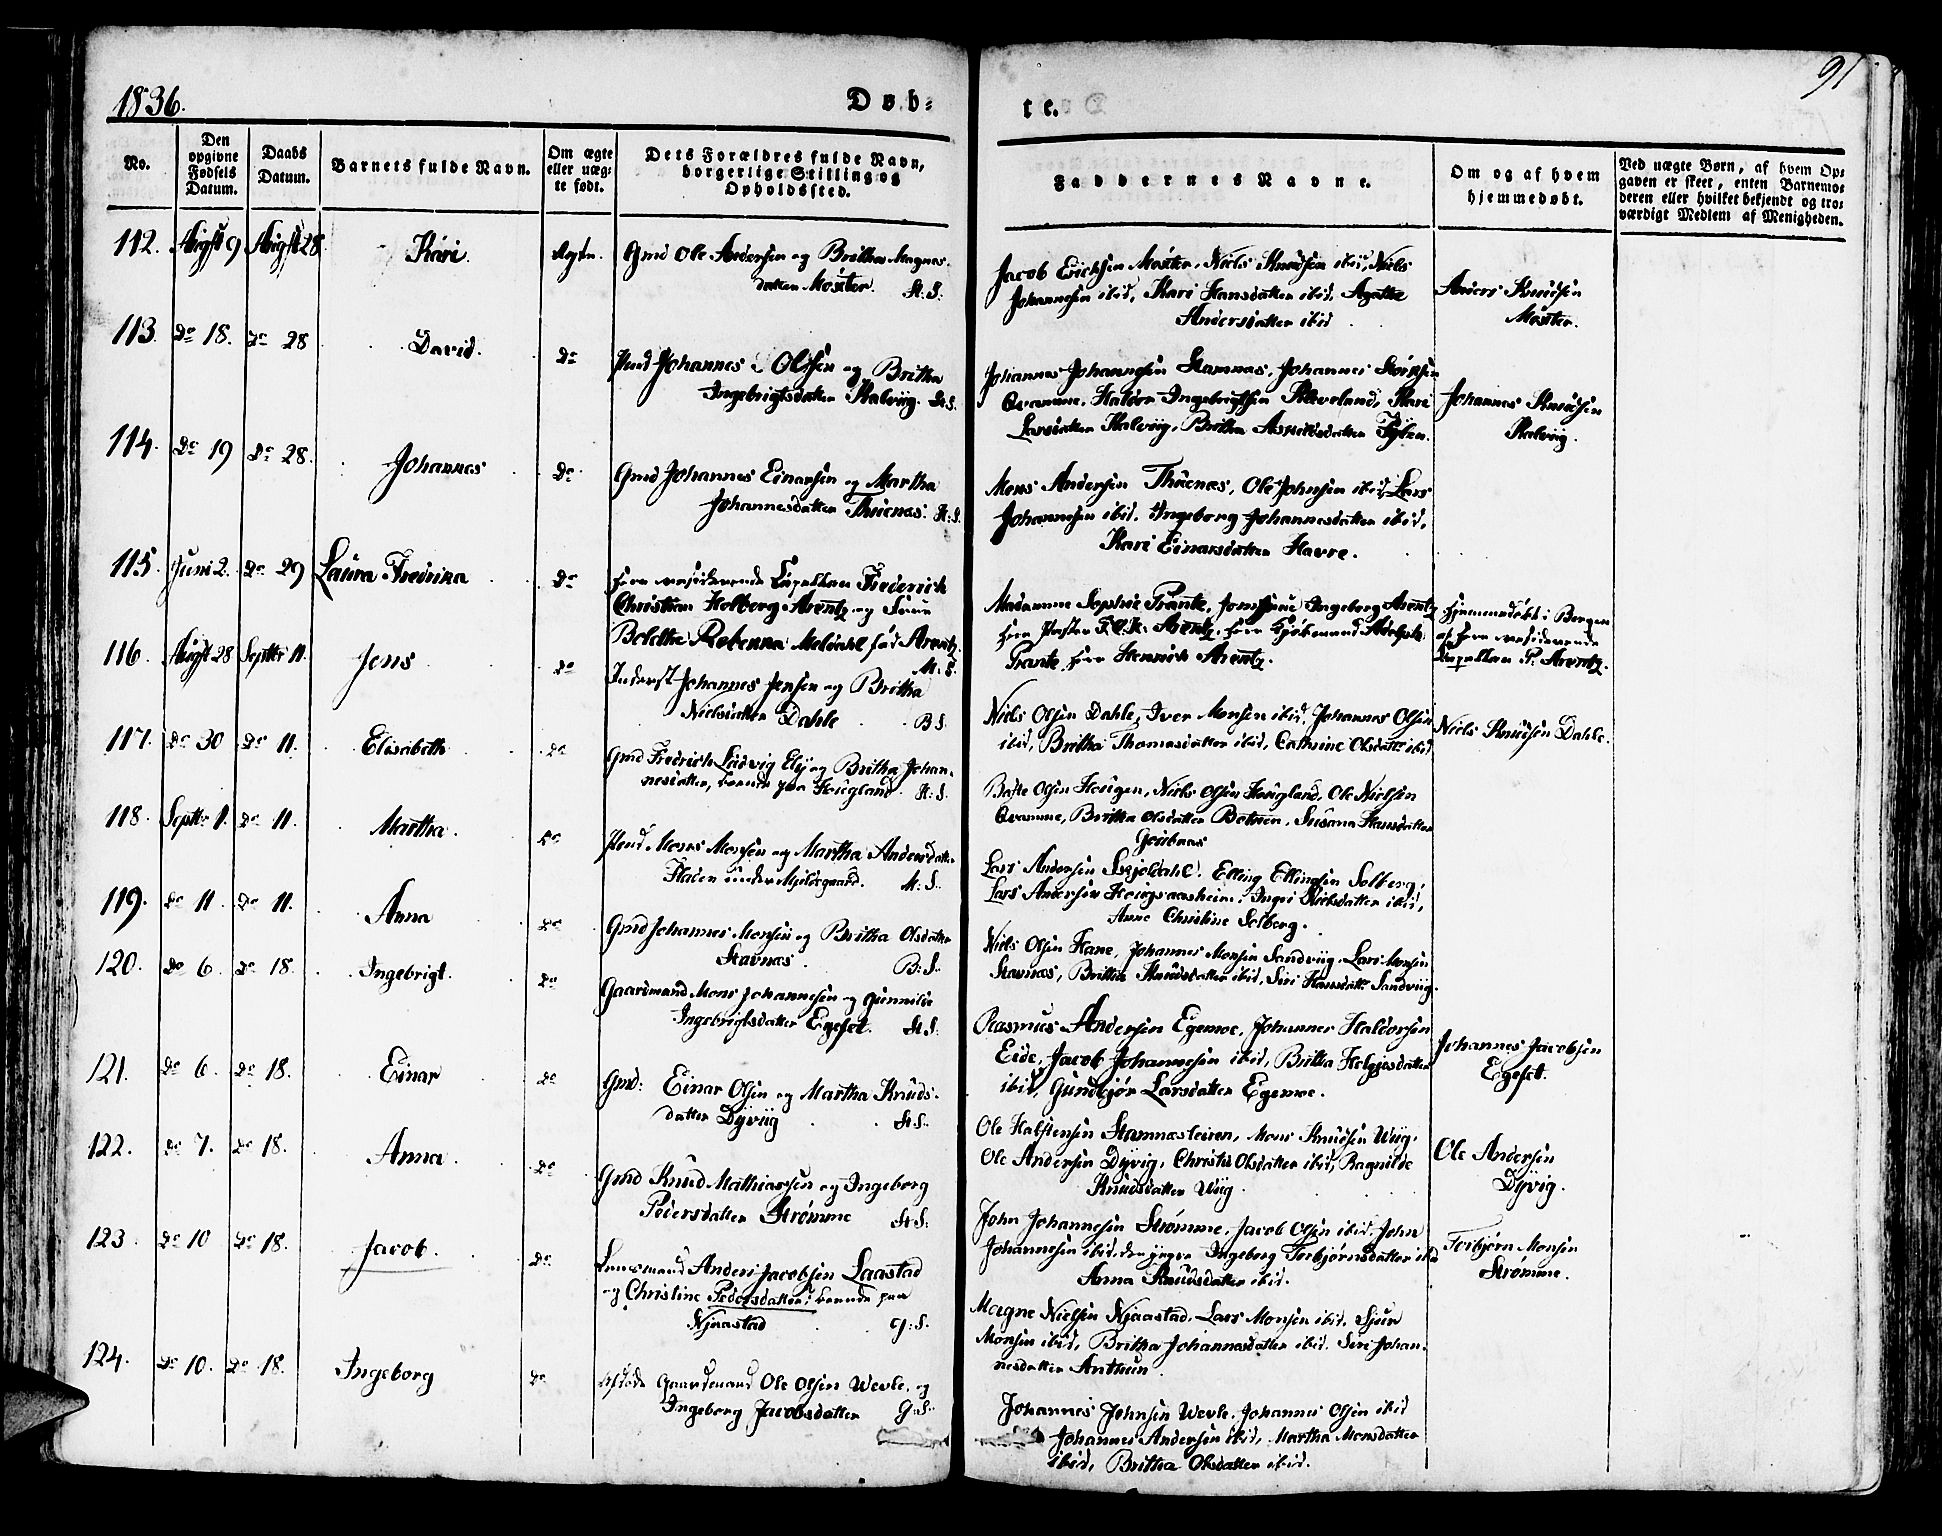 1836.
Døb-
te.
91
No.
Den
opgivne
Fødsels
Datum.
Daabs
Datum.
Barnets fulde Navn.
Om ægte
eller uæg-
te født.
Dets Forældres fulde Navn,
borgerlige Stilling og
Opholdssted.
Faddernes Navne.
Om og af hvem
hjemmedøbt.
Ved uægte Børn, af hvem Op-
gaven er skeet, enten Barnemo-
deren eller hvilket bekjendt og tro-
værdigt Medlem af Menigheden.
112. Augst 9 Augst 28. Kari. Ægte.
Gmd Ole Andersen og Britha Magnes-
datter Moster. St: S:
Jacob Ericksen Moster, Niels Knudsen ibid, Niels
Johannesen ibid, Kari Hansdatter ibid, Agathe
Andersdatter ibid
Anders Knudsen
Moster.
113. Do 18. Do 28 David. Do
Pmd Johannes Olsen og Britha
Ingebrigtsdatter Kalviig. St: S.
Johannes Johannesen Stamnæs, Johannes
Qvamme, Haldor Ingebrigtsen Kleveland, Kari
Larsdatter Kalviig, Britha
Johannes Knudsen
Kalviig.
114. Do 19 Do 28. Johannes Do
Gmd Johannes Einarsen og Martha
Johannesdatter Thuenæs. St: S.
Mons Andersen Thuenæs, Ole Johnsen ibid, Lars
Johannesen ibid. Ingeborg Johannesdatter ibid,
Kari Einarsdatter Havre.
115. Juni 2. Do 29 Laura Fredrica Do
Herr residerende Capellan Frederich
Christian Holberg Arentz og Frue
Boletha Rebenna Meldahl fød Arentz.
M: S.
Madamme Sophie Prante, Jomfrue Ingeborg Arentz
Herr Pastor F.C.H. Arentz. Herr Kjøbmand Adolph
Prante, Herr Henrich Arentz.
Hjemmedøbt i Bergen
af Herr residerende
Capellan P. Arentz.
116. Augst 28 Septbr 11. Jens Do
Inderst Johannes Jensen og Britha
Nielsdatter Dahle B: S.
Niels Olsen Dahle, Iver Monsen ibid, Johannes Olsen
ibid, Britha Thomasdatter ibid, Cathrine Olsdattr ibid
Niels Knudsen Dahle.
117. Do 30 Do 11. Elisabeth Do
Gmd Fredrich Ludvig Ely og Britha Johan-
nesdatter, boende paa Hougland. St: S.
Olsen Hougen, Niels Olsen Hougland, Ole Nielsen
Qvamme, Britha Olsdatter Botnen, Susana Hansdatter
118. Septbr 1. Do 11. Martha. Do
Pmd Mons Monsen og Martha Andersdatter
Fladen under Mjelsgaard. M: S.
Lars Andersen Skjoldahl, Elling Ellingsen Solberg,
Lars Andersen, Ingri Nielsdatter ibid,
Anne Christine Solberg.
119. Do 11 Do 11. Anna Do
Gmd Johannes Monsen og Britha Olsdatter
Stavnæs. B: S.
Niels Olsen Hane, Johannes Monsen Sandviig. Lars Monsen
Stavnæs, Britha Knudsdatter ibid, Siri Hansdattr Sandviig.
120. Do 6. Do 18. Ingebrigt. Do
Gaardmand Mons Johannesen og Gunnilde
Ingebrigtsdatter Egeset. St: S.
Rasmus Andersen Egemoe, Johannes Haldorsen
Eide, Jacob Johannesen ibid, Britha Helgesdatter
ibid, Gundbjør Larsdatter Egemoe.
Johannes Jacobsen
Egeset.
121. Do 6. Do 18. Einar Do
Gmd: Einar Olsen og Martha Knuds-
datter Dyviig St: S.
Ole Halstensen Stamnæsleiren, Mons Knudsen Wiig,
Ole Andersen Dyvig, Christi Olsdatter ibid, Ragnilde
Knudsdatter Wiig.
Ole Andersen
Dyvig.
122. Do 7. Do 18. Anna. Do
Gmd Knud Mathiassen og Ingeborg
Pedersdatter Strømme St: S:
John Johannesen Strømme, Jacob Olsen ibid, John
Johannesen ibid, den yngre Ingeborg Torbjørnsdatter ibid
Anna Knudsdatter ibid.
Torbjørn Monsen
Strømme.
123. Do 10 Do 18. Jacob. Do
Lensmand Anders Jacobsen Laastad
og Christine Pedersdatter, boende paa
Njaastad G: S.
Magne Nielsen Njaastad, Lars Monsen ibid, Sjur
Monsen ibid, Britha Johannesdatter ibid. Siri Johan-
nesdatter Anthun.
124. Do 10. Do 18. Ingeborg Do
Afdøde Gaardmand Ole Olsen Wevle, og
Ingeborg Jacobsdatter G: S.
Johannes Johnsen Wevle, Johannes Olsen ibid
Johannes Andersen ibid, Martha Monsdatter
ibid, Britha Olsdatter ibid.